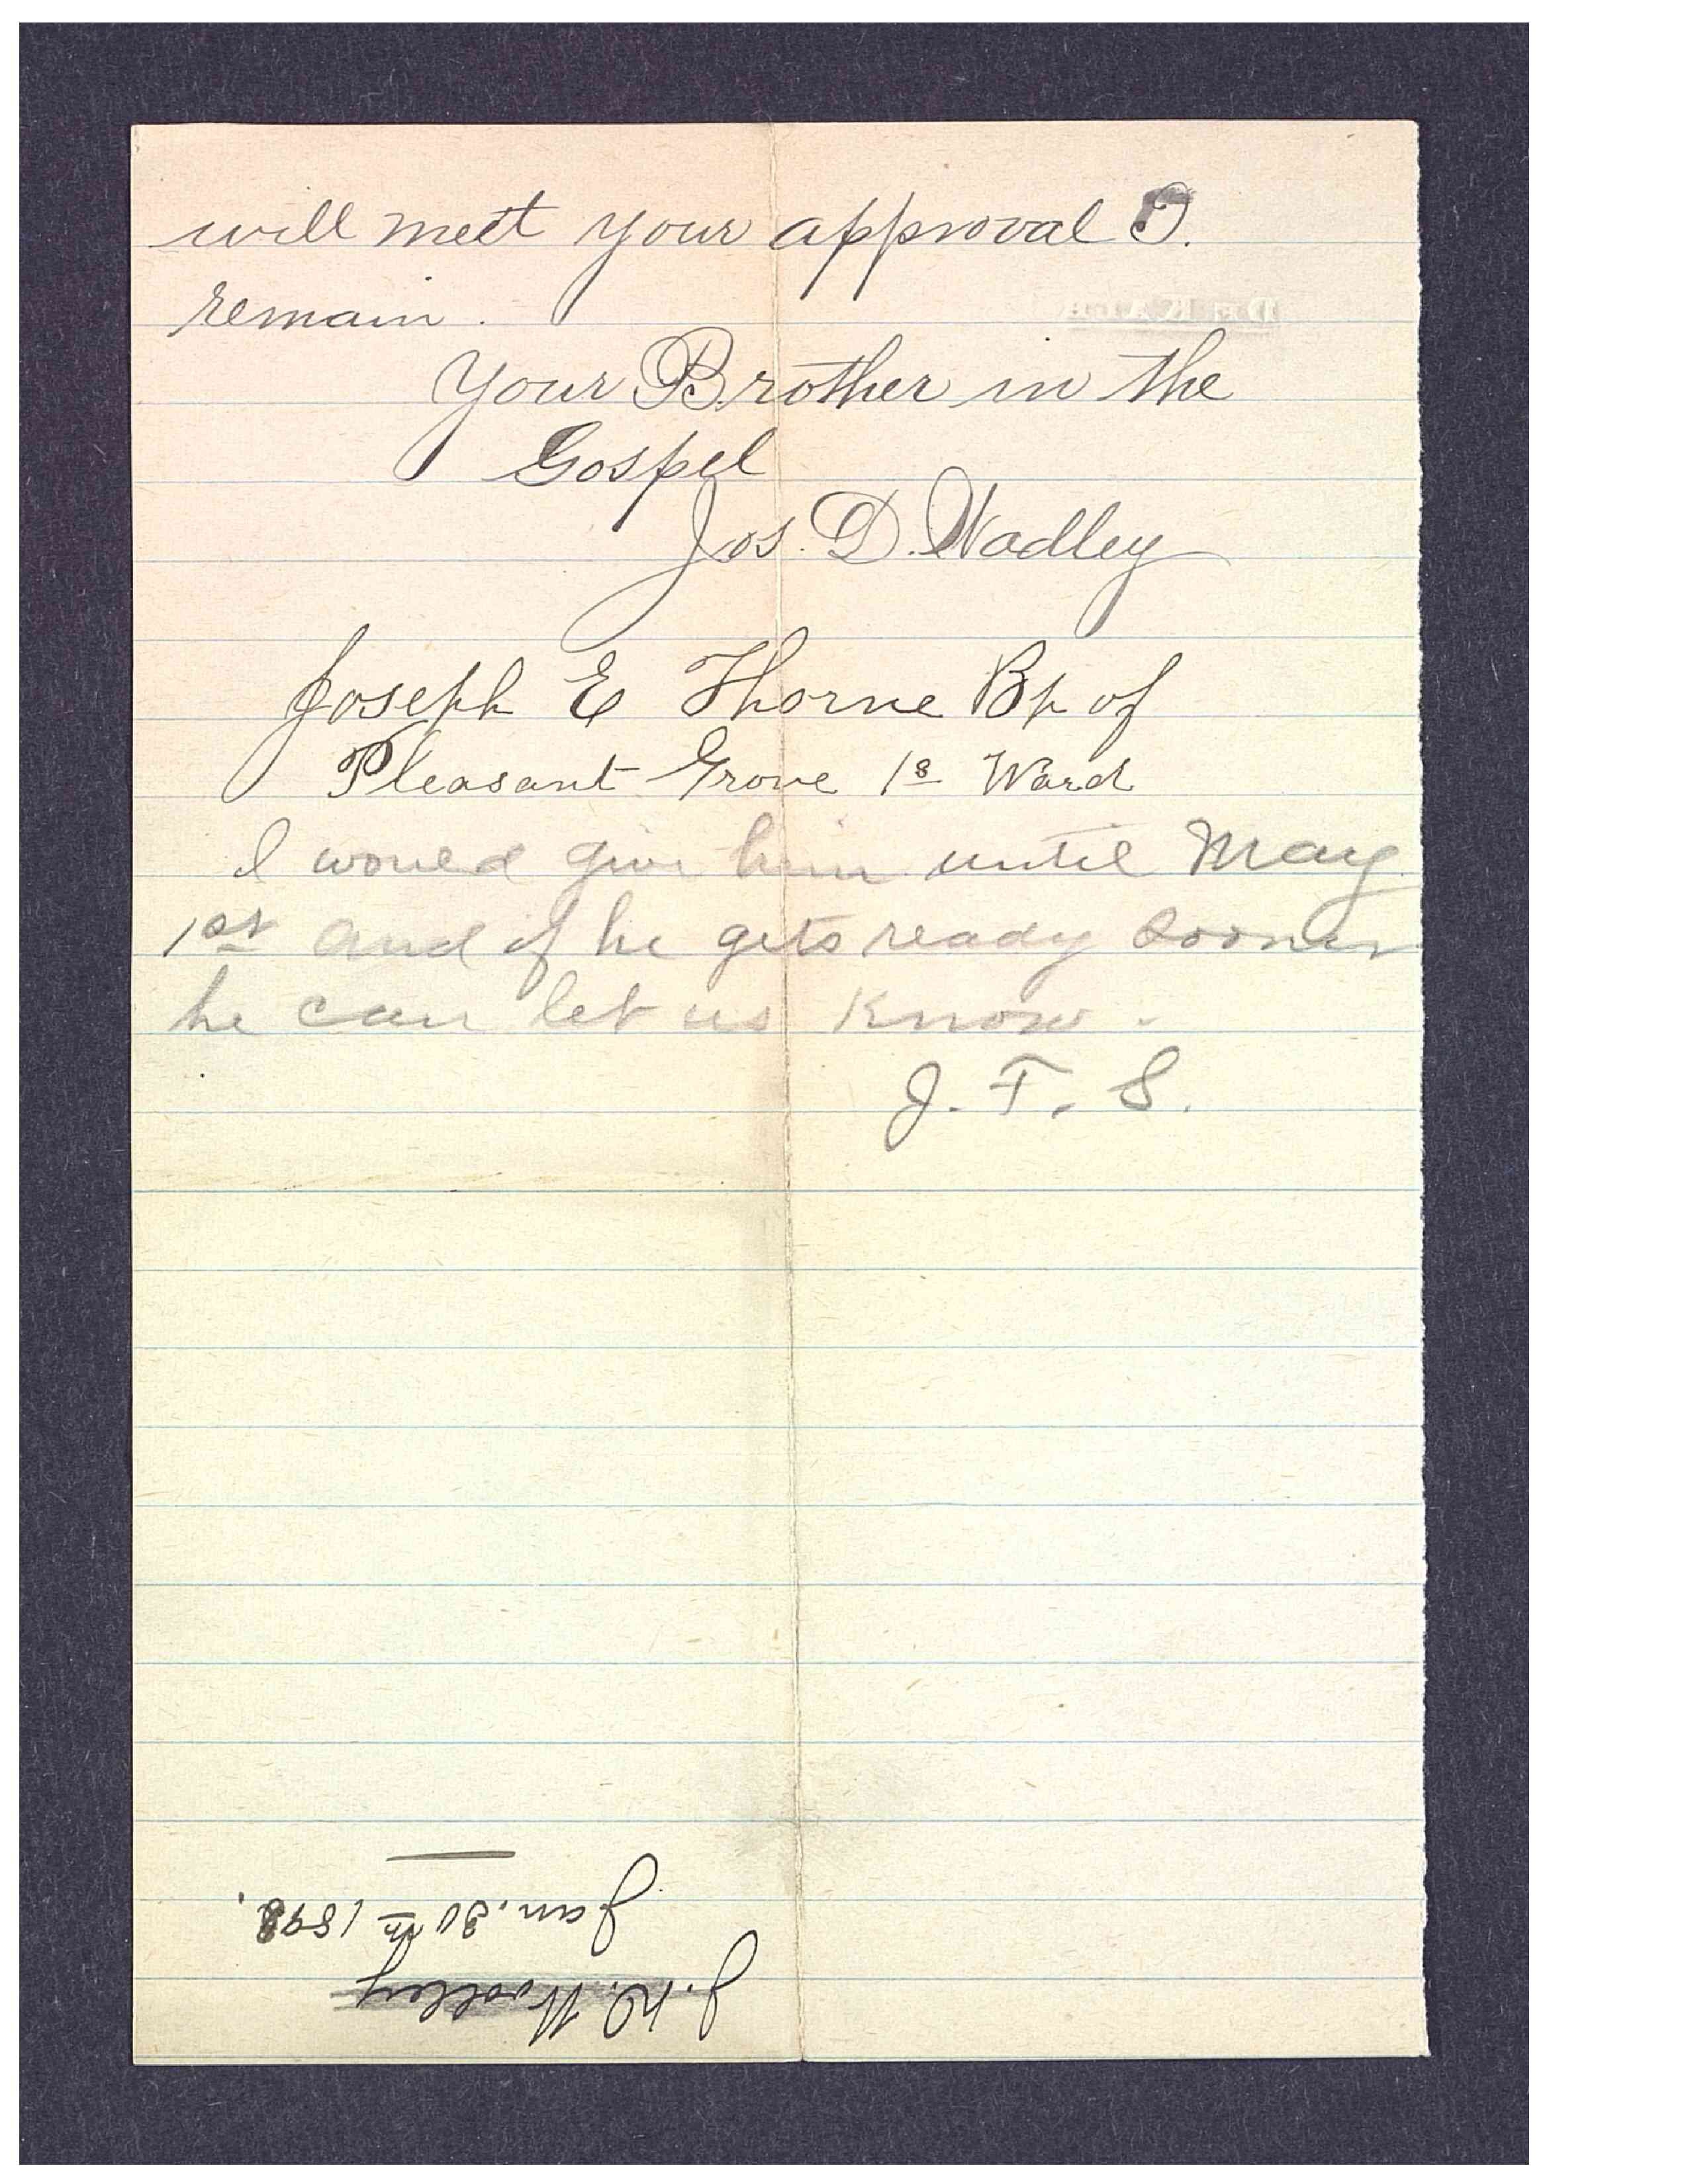 will meet your approval I.
remain.
Your Brother in the
Gospel
Jos. D. Wadley
Joseph E Thorne Bp of
Pleasant Grove 1s Ward
I would give him until May
1st and if he gets ready sooner
he can let us know.
J. F. S.
J. D. Wadley
Jan. 30th 1898.